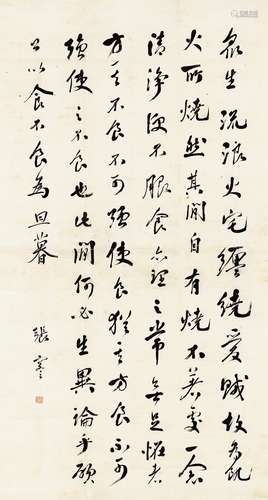 眾生流浪火宅纏繞愛賊故為飢
火所燒然其間自有燒不著處一念
清淨便不服食亦理之常無足怪者
方其不食不可強使食猶其方食不可
強使之不食也此間何必生異論乎願
公以食不食為旦暮
張謇